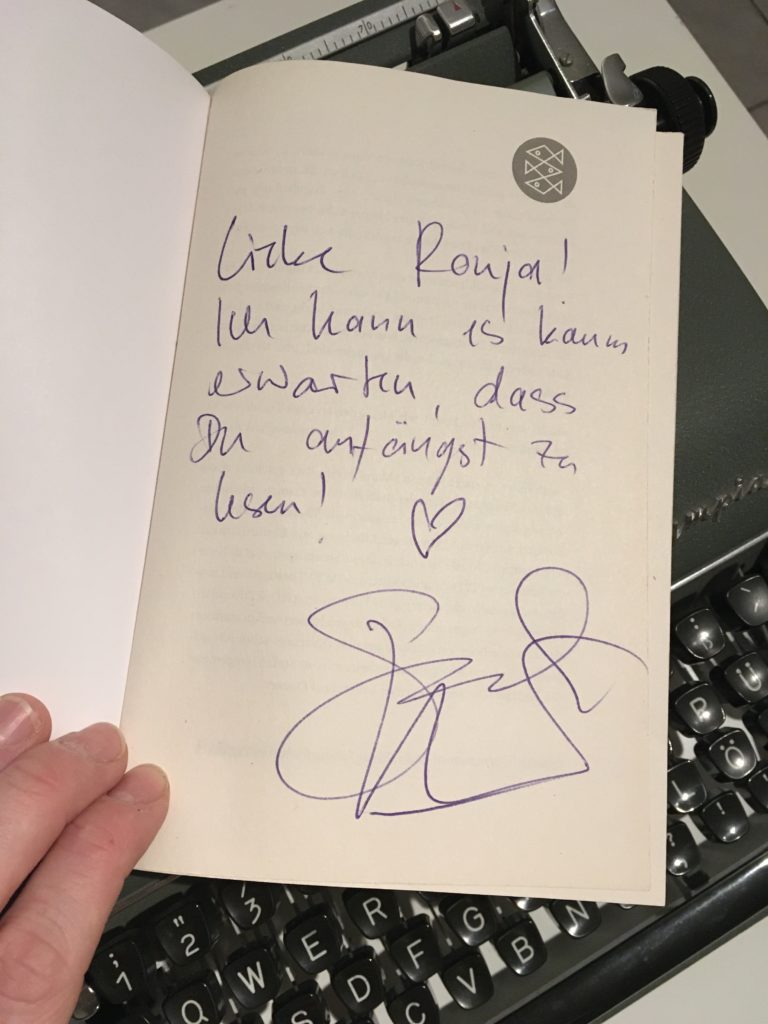 Liebe Ronja!
Ich kann es kaum
erwarten, dass
Du anfängst zu
lesen!
" 2 3
1
Q W E R
S D F G
C V B N
P Ü
Ö